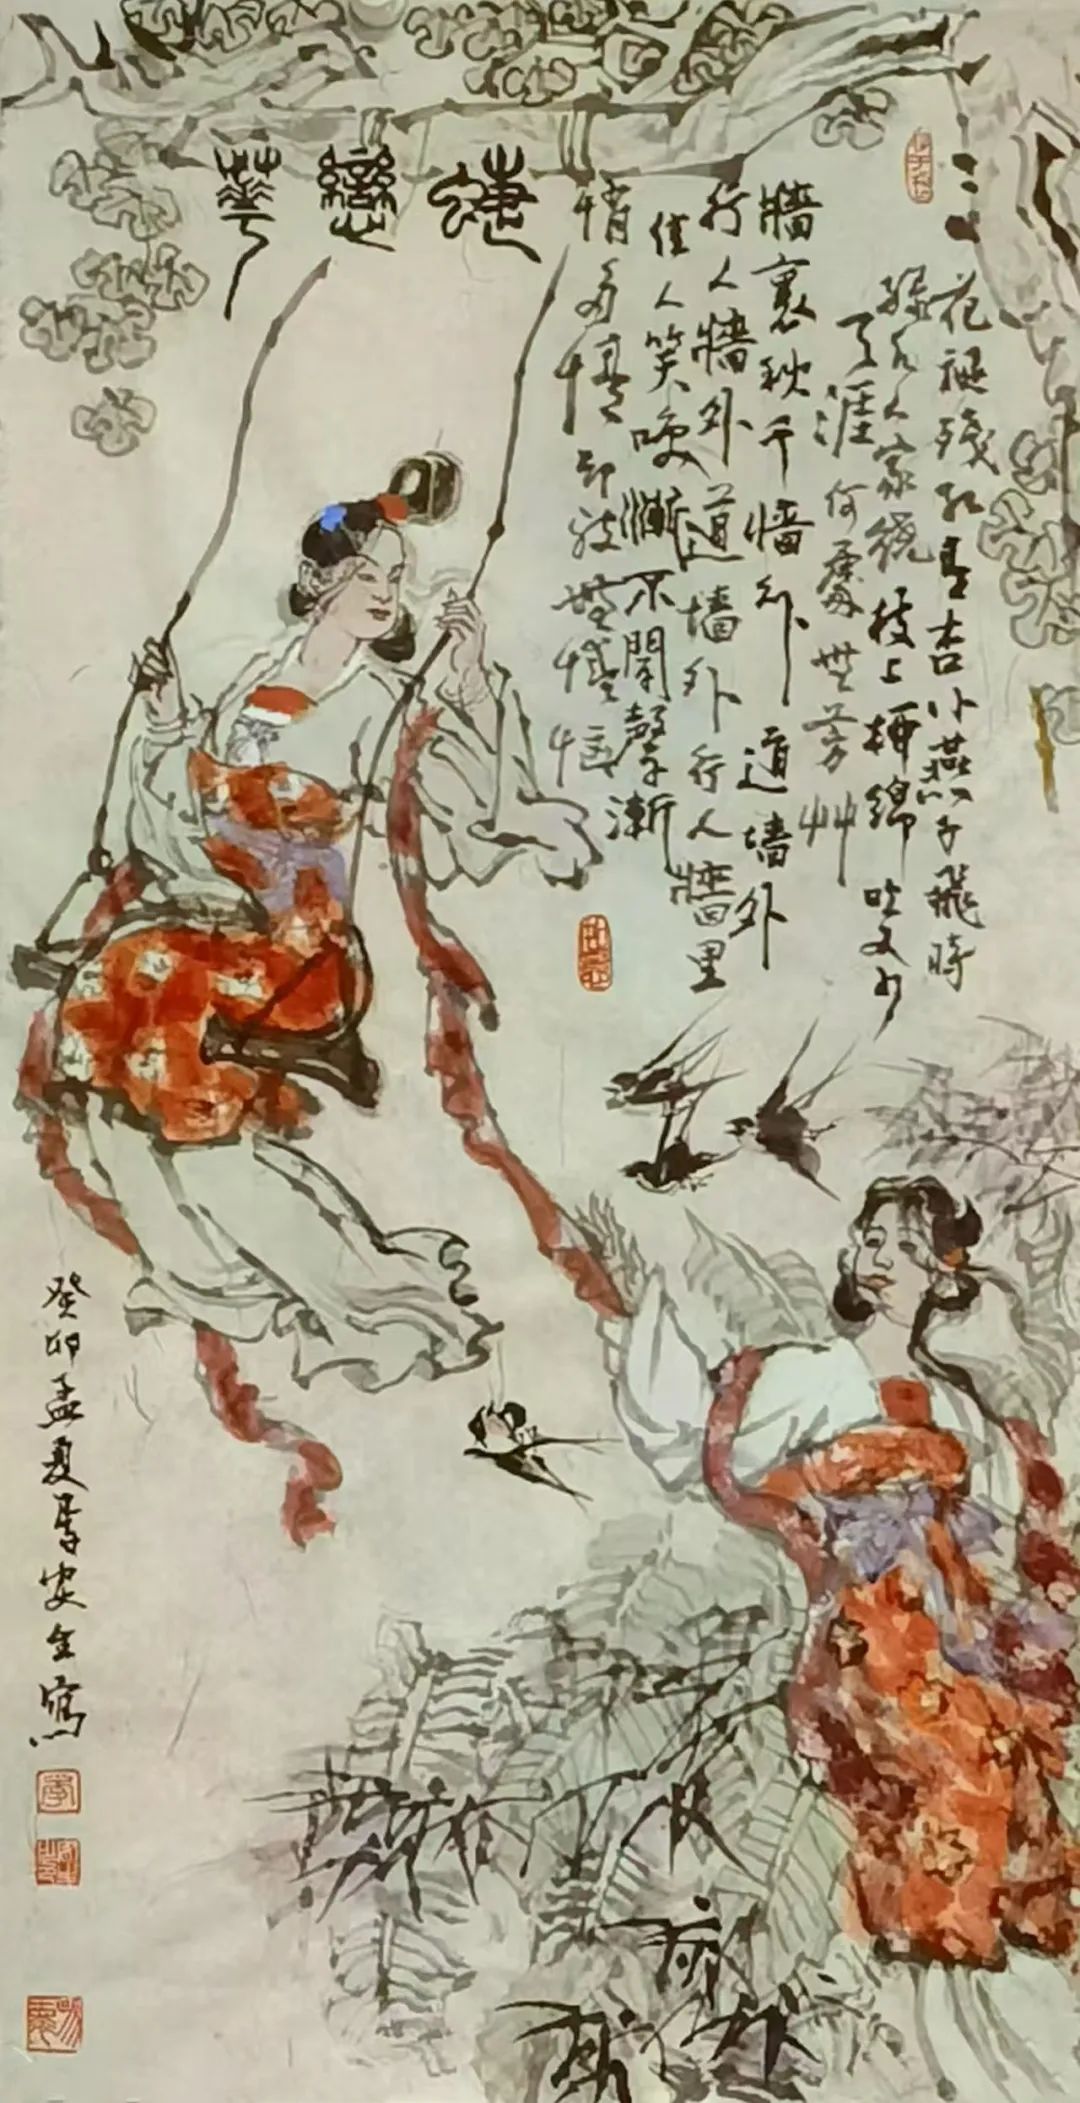 蝶戀華
花褪殘紅青杏小燕子飛時
綠水人家繞枝上柳綿吹又少
天涯何處無芳艸
牆裏秋千墻外道墻外
行人牆外道墻外行人牆里
佳人笑喚漸不聞聲漸
情多情卻被無情惱
癸卯孟夏安全寫